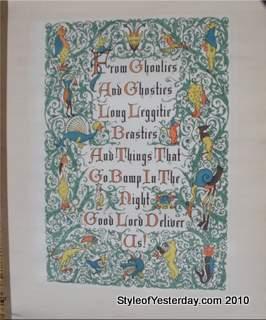 From Ghoulies
And Ghosties
Long Leggitie
Beasties
And Things That
Go Bump In The
Night
Good Lord Deliver
Us!
StyleofYesterday.com 2010